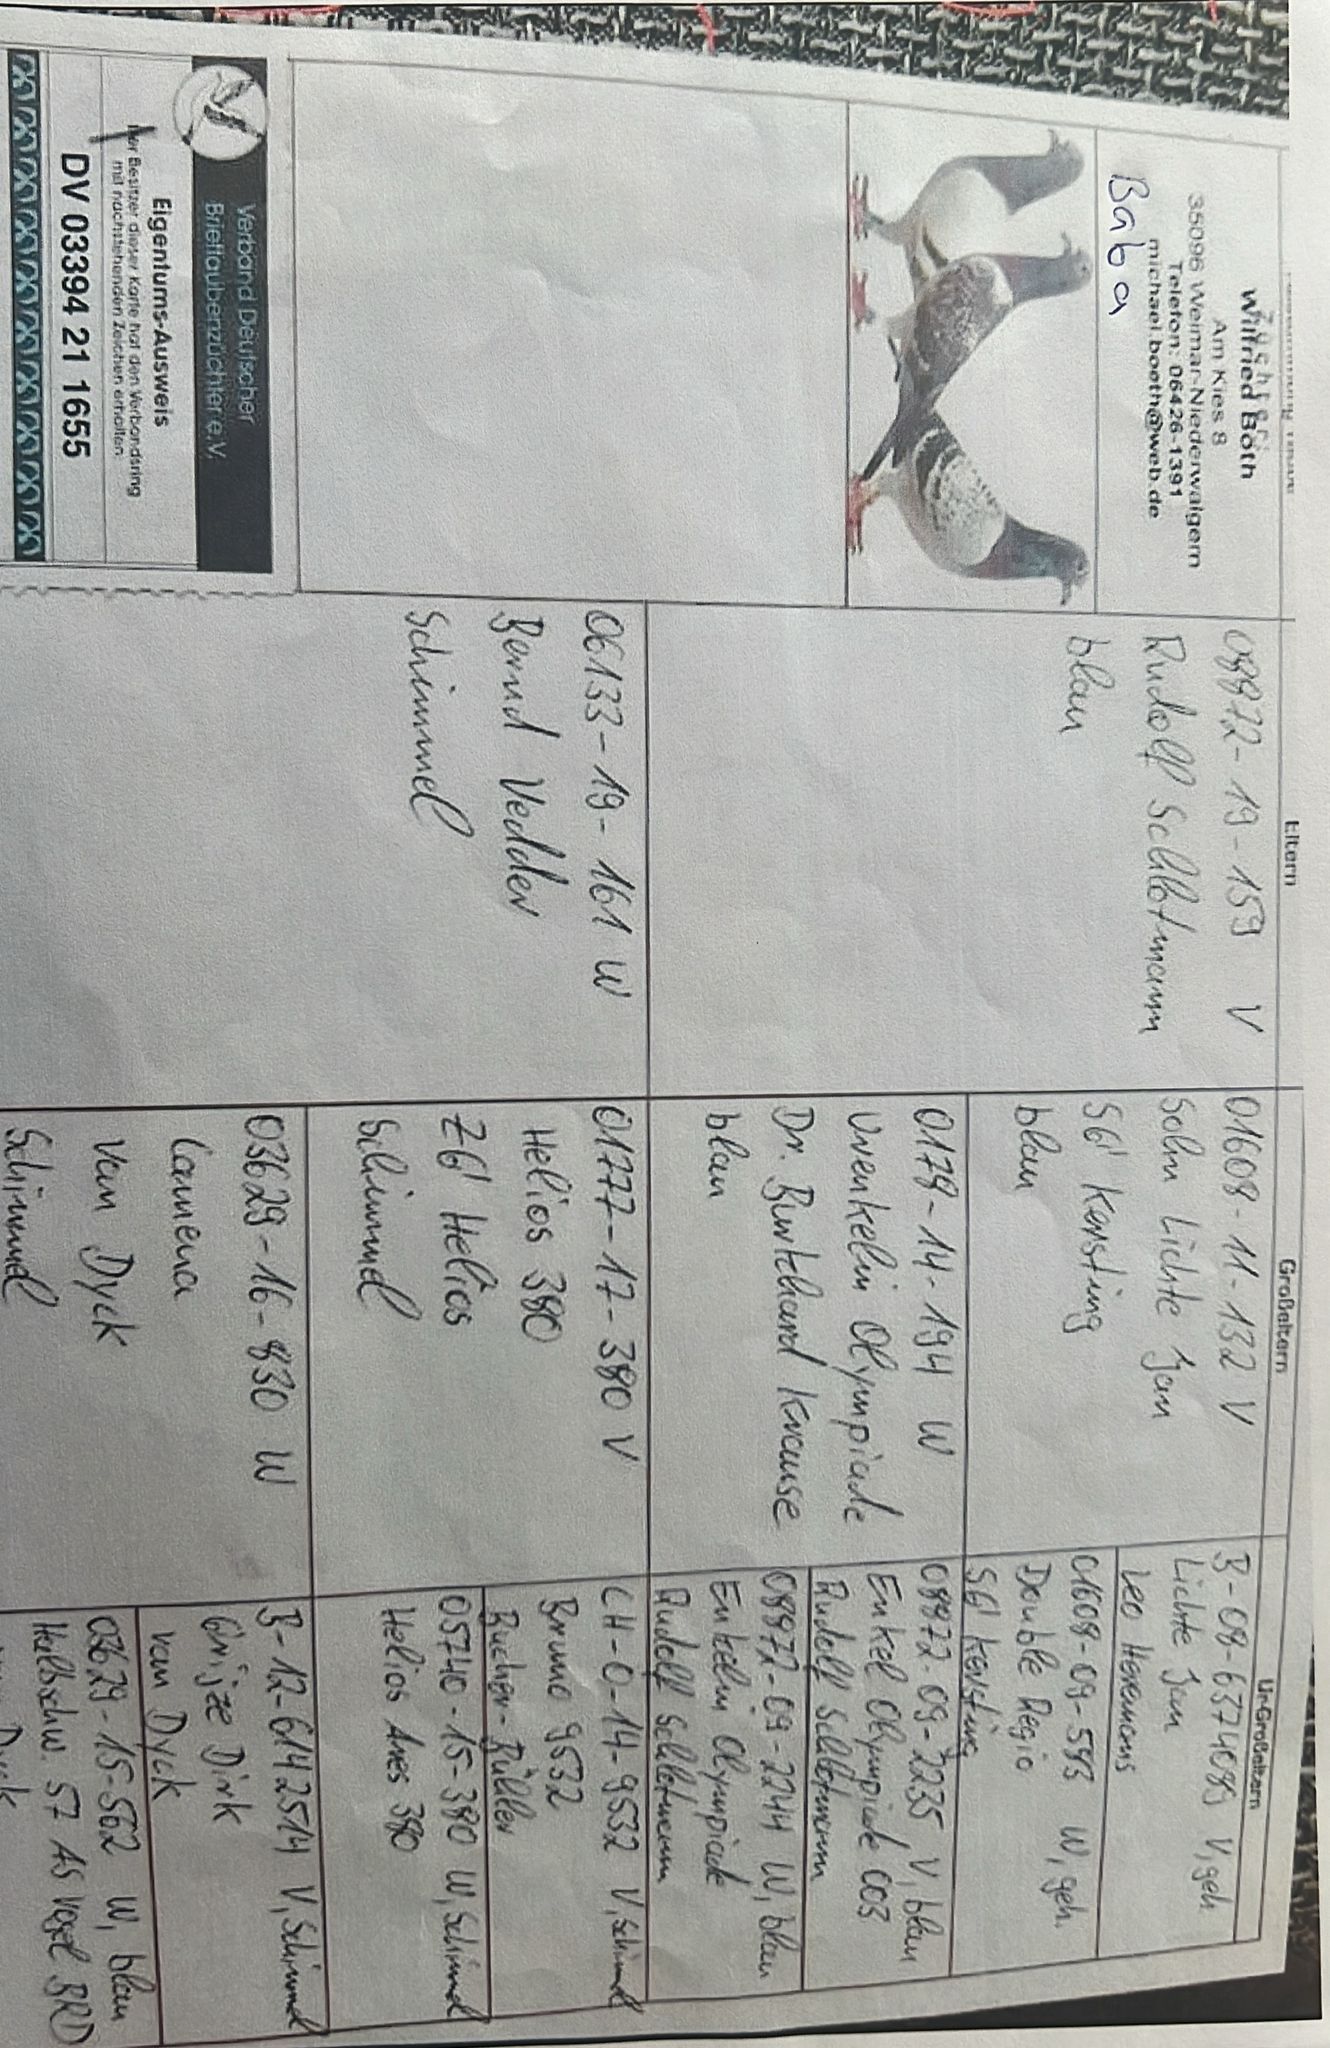 Wilfried Böth
Am Kies 8
35096 Weimar-Niederwalgern
Telefon: 06426-1391
michael.boeth@web.de
Baba
Verband Deutscher
Brieftaubenzüchter e.V.
Eigentums-Ausweis
Der Besitzer dieser Karte hat den Verbandsring
mit nachstehenden Zeichen erhalten
DV 03394 21 1655
Eltern
08872-19-159 V
Rudolf Schlotmann
blau
06133-19-161 W
Bernd Vedder
Schimmel
Großeltern
01608-11-132 V
Sohn Lichte Jan
SG Kersting
blau
0178-14-194 W
Urenkelin Olympiade
Dr. Burkhard Krause
blau
01777-17-380 V
Helios 380
ZG Helios
Schimmel
03629-16-830 W
Camena
van Dyck
Schimmel
Ur-Großeltern
B-08-6374099 V, geh.
Lichte Jan
Leo Heremans
01608-09-593 W, geh.
Double Regio
SG Kersting
08872-09-2235 V, blau
Enkel Olympiade 003
Rudolf Schlotmann
08872-09-2244 W, blau
Enkelin Olympiade
Rudolf Schlotmann
CH-0-14-9532 V, Schimmel
Bruno 9532
05740-15-380 W, Schimmel
Helios Ares 380
B-12-6142514 V, Schimmel
Grijze Dirk
van Dyck
03629-15-562 W, blau
57 AS Vogel BRD
Dyck